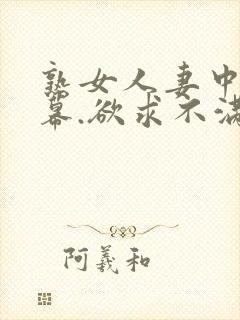 熟女人妻中
幕.欲求不满
阿羲和